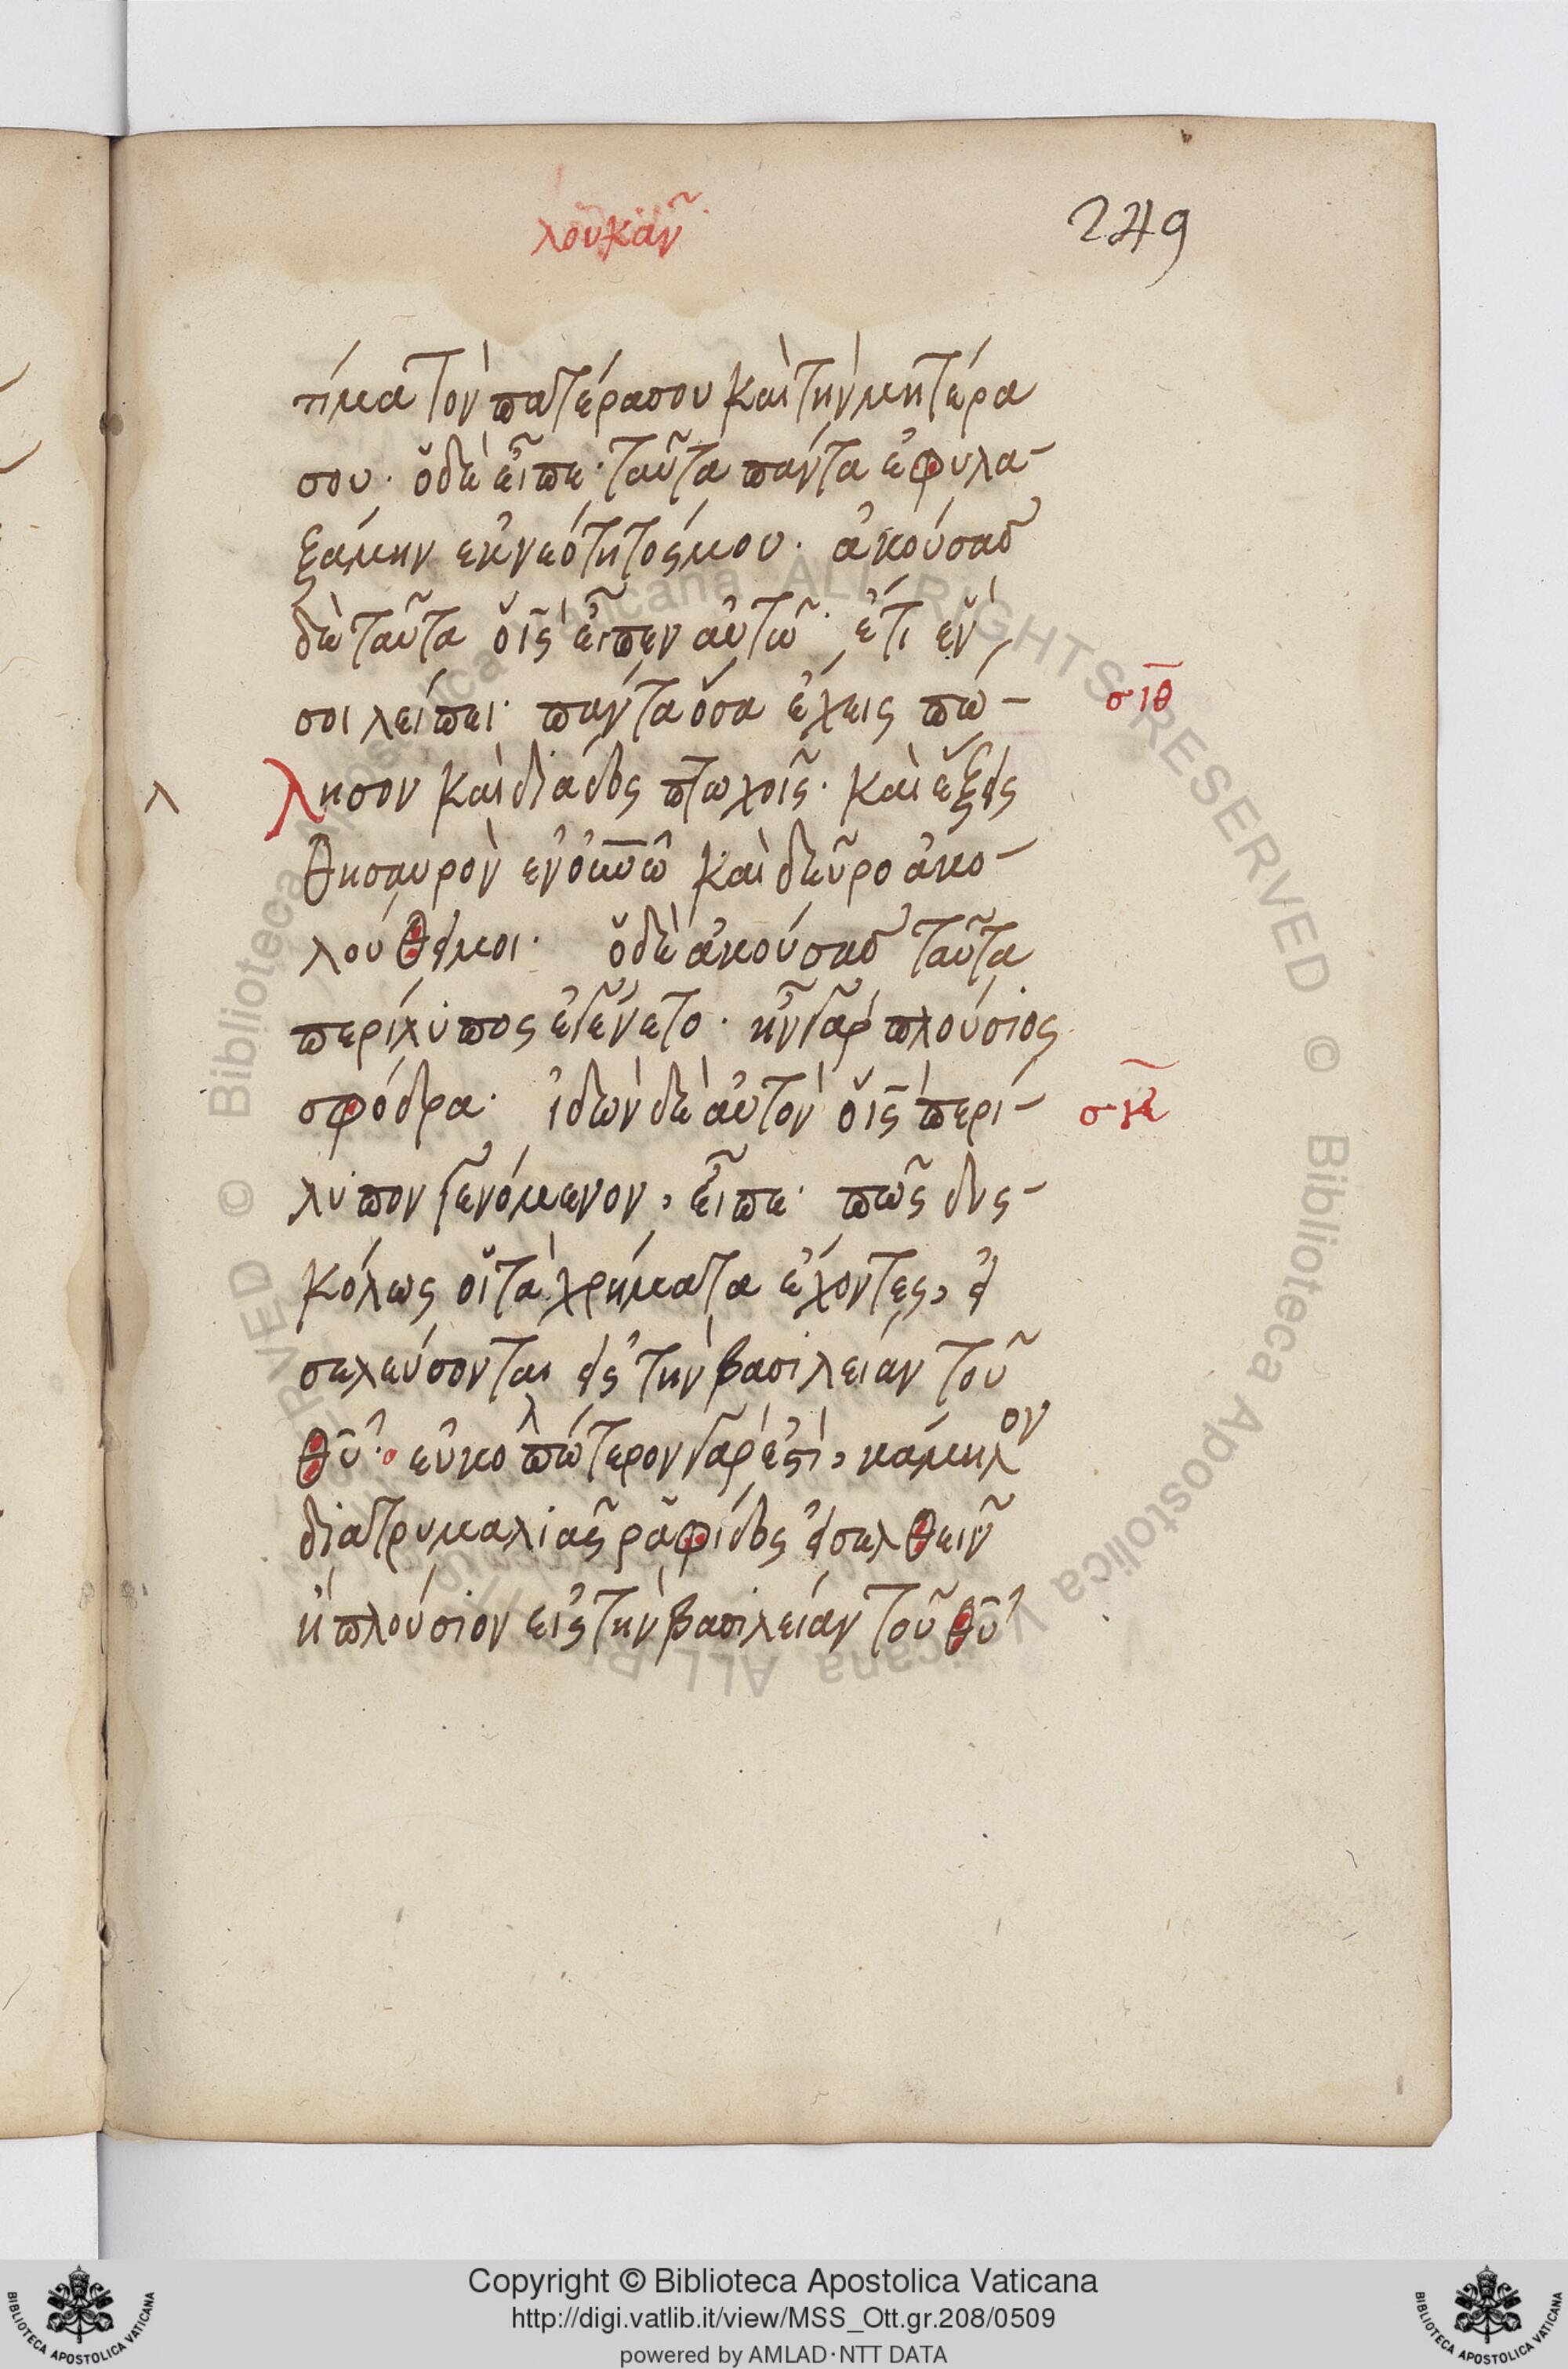 λουκᾶν
249
τίμα τὸν πατέρα σου καὶ τὴν μητέρα
σου· ὁ δὲ εἶπε· ταῦτα πάντα ἐφυλα-
ξάμην ἐκ νεότητός μου· ἀκούσας
δὲ ταῦτα ὁ ις εἶπεν αὐτῶ· ἔτι ἕν
σοι λείπει· πάντα ὅσα ἔχεις πώ-
σιθ
λησον καὶ διάδος πτωχοῖς· καὶ ἕξεις
θησαυρὸν ἐν οὐνῶ καὶ δεῦρο ἀκο-
λούθει μοι· ὁ δὲ ἀκούσας ταῦτα
περίλυπος ἐγένετο· ἦν γὰρ πλούσιος
σφόδρα· ἰδὼν δὲ αὐτὸν ὁ ις περί-
σκ
λυπον γενόμενον, εἶπε· πῶς δυς-
κόλως οἱ τὰ χρήματα ἔχοντες, εἰ
σελεύσονται εἰς τὴν βασιλείαν τοῦ
θυ· εὐκοπώτερον γάρ ἐστι, κάμηλον
διὰ τρυμαλιᾶς ραφίδος εἰσελθεῖν
ἢ πλούσιον εἰς τὴν βασιλείαν τοῦ θυ
Copyright © Biblioteca Apostolica Vaticana
http://digi.vatlib.it/view/MSS_Ott.gr.208/0509
powered by AMLAD·NTT DATA